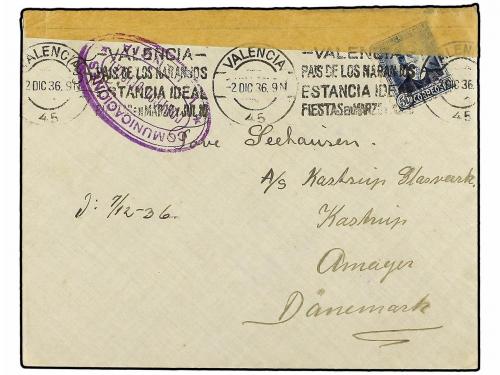 VALENCIA
2 DIC 36. 9M
45
-VALENCIA-
PAIS DE LOS NARANJOS
ESTANCIA IDEAL
FIESTAS EN MARZO Y JULIO
VALENCIA
2 DIC 36. 9M
45
-VALENCIA-
PAIS DE LOS NARANJOS
ESTANCIA IDEAL
FIESTAS EN MARZO
VALENCIA
2 DIC 36.
45
COMUNICACIONES
CORREOS
Tove Seehausen.
A/S Kastrup Glasværk,
J: 7/12-36.
Kastrup
Amager
Dänemark